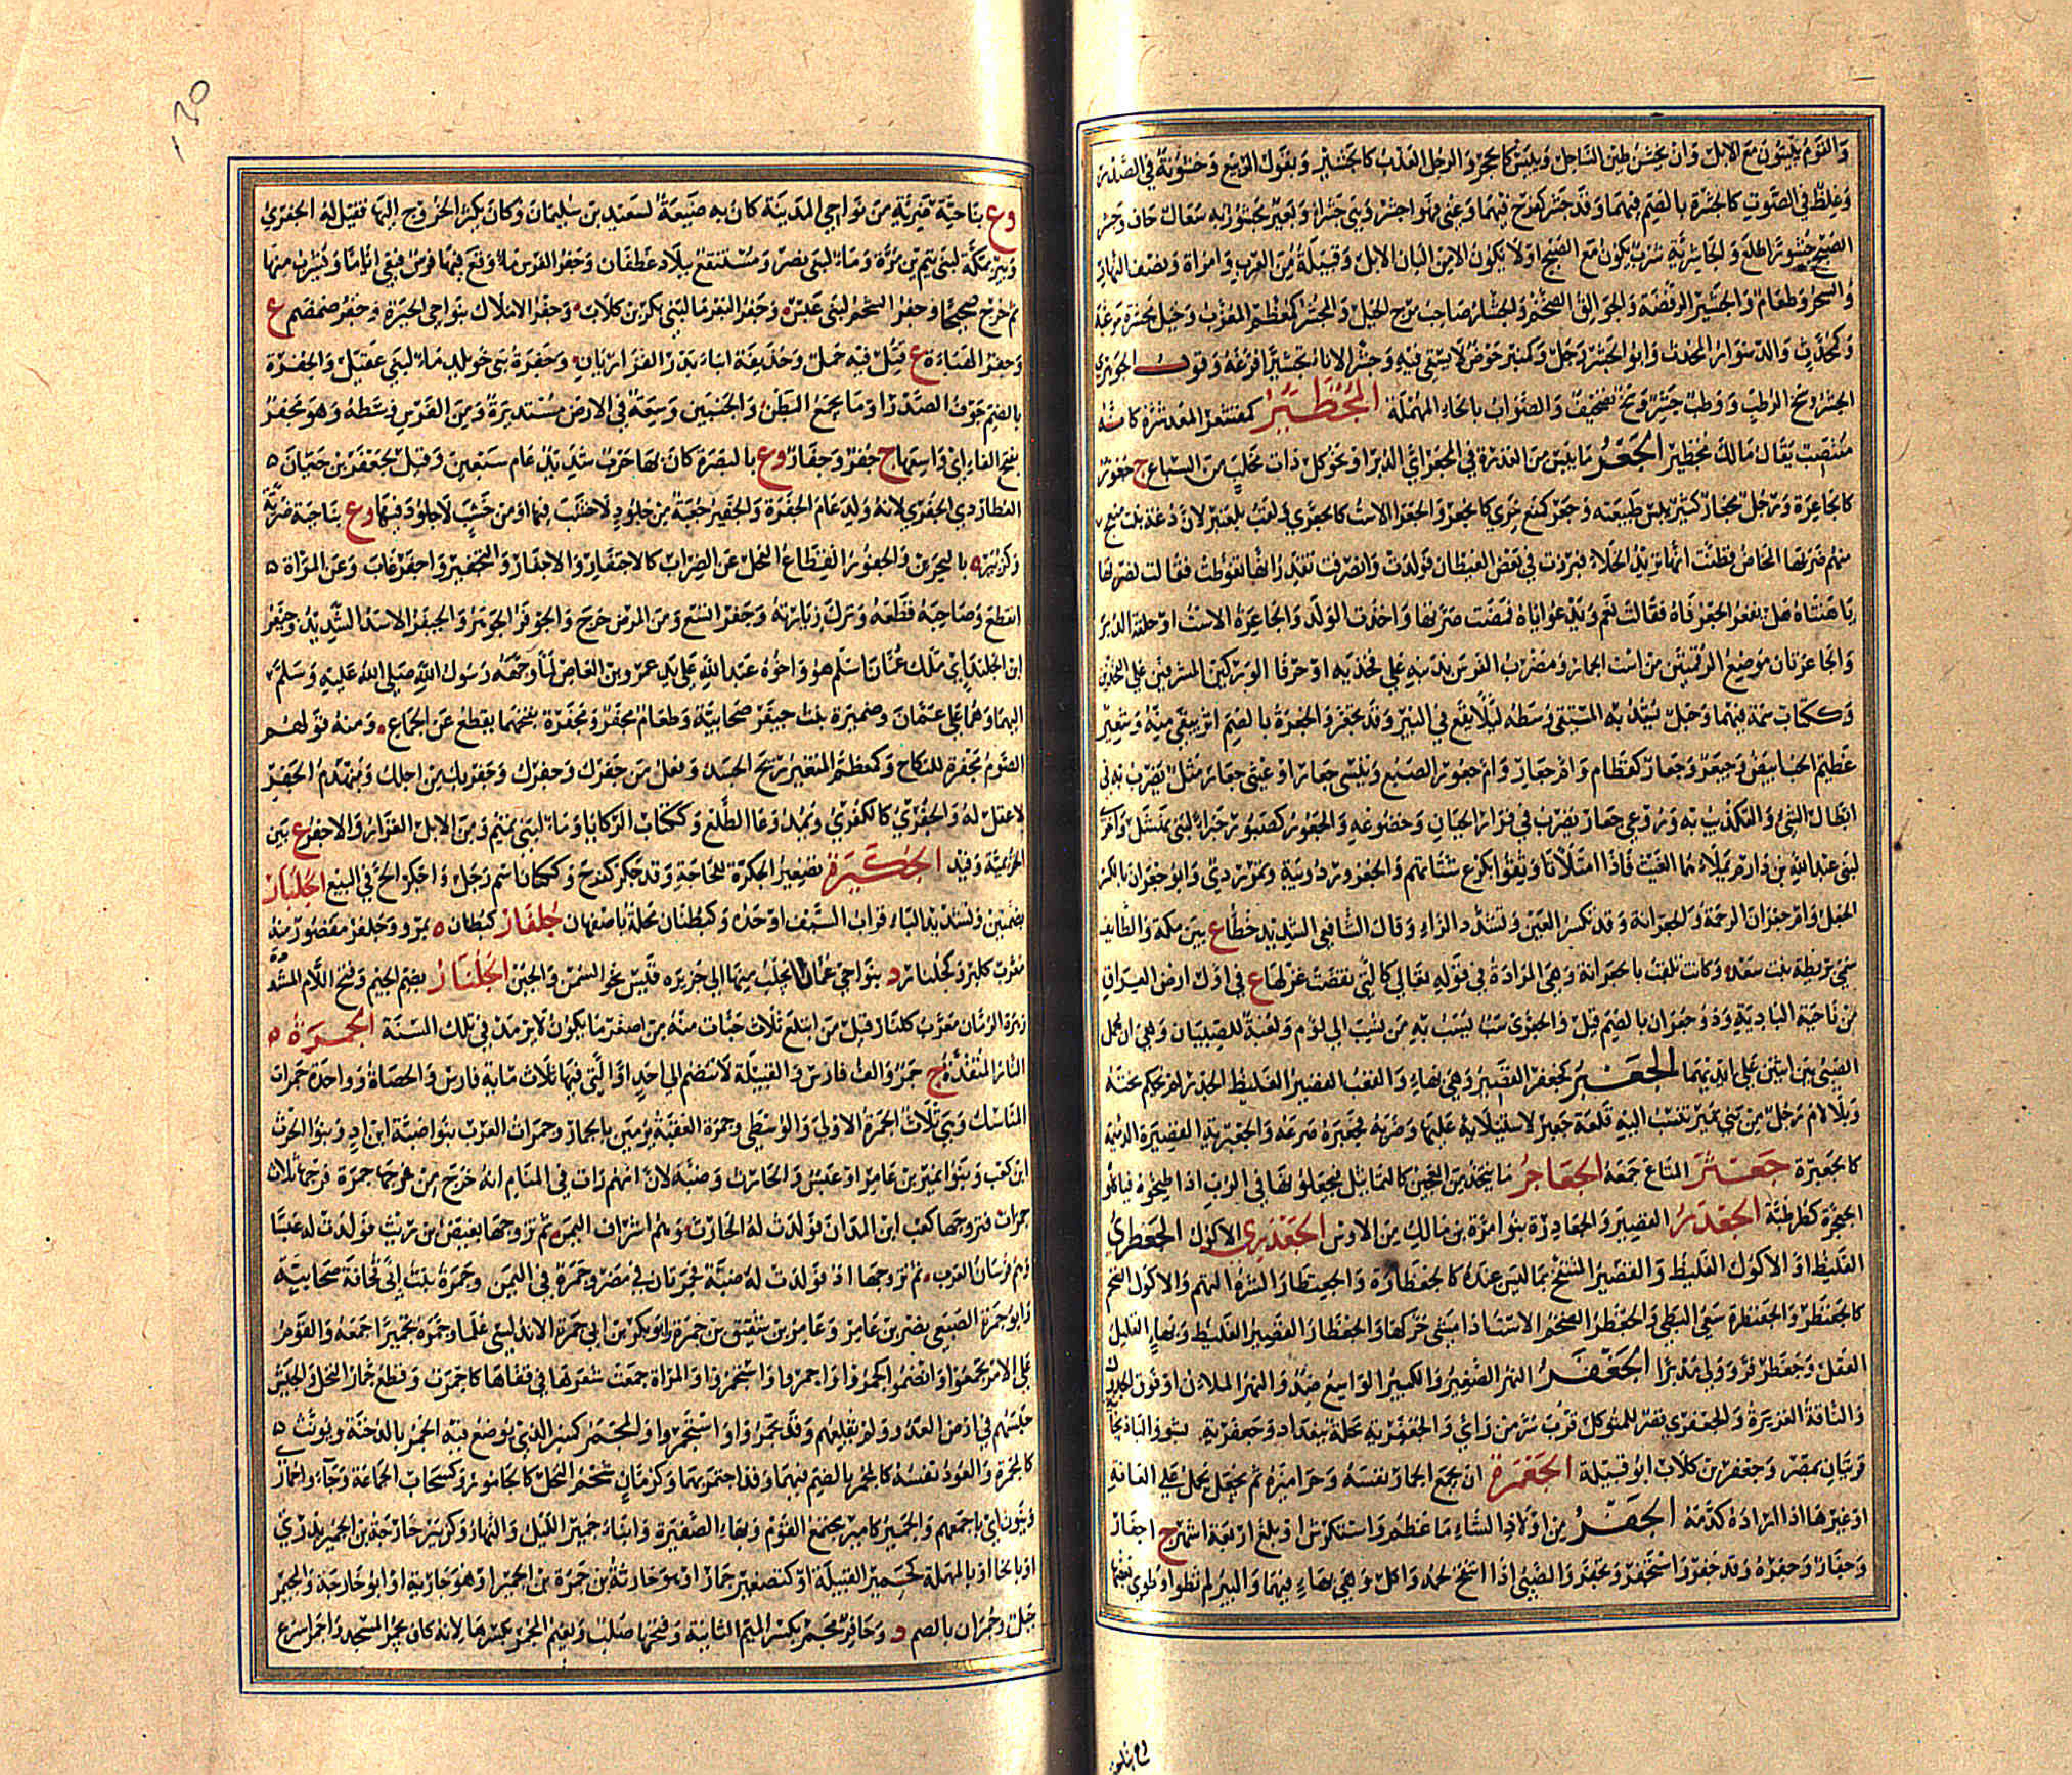 والقوم يبيتون مع الابل وان يخشن طين الساحل وييبس كالحجر والرجل العزب كالجشير وبقول الربيع وخشونة في الصدر
وغلظ في الصوت كالجشرة بالضم فيهما وقد جشر كفرح فيهما وعني فهو اجشر وهي جشراء وبعير مجشور به سعال جاف وجشر
الصبح جشورا طلع والجاشرية شرب يكون مع الصبح او لا يكون الا من البان الابل وقبيلة من العرب وامراة ونصف النهار
والسحر وطعام والجشير الوفضة والجوالق الضخم والجشار صاحب مرج الخيل والمجشر كمعظم المعزب وخيل مجشرة مرعية
وكمحدث والد سوار المحدث وابو الجشر رجل وكمنبر حوض لا يستقى فيه وجشر الاناء تجشيرا فرغه وقول الجوهري
الجشر وسخ الوطب ووطب جشر وسخ تصحيف والصواب بالحاء المهملة المجظئر كمقشعر المعد شره كانه
منتصب يقال مالك مجظئر الجعر ما يبس من العذرة في المجعر اي الدبر او نحو كل ذات مخلب من السباع ج جعور
كالجاعرة ورجل مجعار كثر يبس طبيعته وجعر كمنع خرئ كانجعر والجعراء الاست كالجعرى ولقب بلعنبر لان دغة بنت منعج
منهم ضربها المخاض فظنت انها تريد الخلاء فبرزت في بعض الغيطان فولدت وانصرفت تقدر انها تغوطت فقالت لضرتها
يا هنتاه هل يفغر الجعر فاه فقالت نعم ويدعو اباه فمضت ضرتها واخذت الولد والجاعرة الاست او حلقة الدبر
والجاعرتان موضع الرقمتين من است الحمار ومضرب الفرس بذنبه على فخذيه او حرفا الوركين المشرفين على الفخذين
وككتاب سمة فيهما وحبل يشد به المستقي وسطه لئلا يقع في البئر وقد تجعر والجعرة بالضم اثر يبقى منه وشعير
عظيم الحب ابيض وجيعر وجعار كقطام وام جعار وام جعور الضبع وتيسي جعار او عيثي جعار مثل يضرب به في
ابطال الشيء والتكذيب به وروعي جعار يضرب في فرار الجبان وخضوعه والجعور كصبور خبراء لبني نهشل واخرى
لبني عبد الله بن دارم يملاءهما الغيث فاذا امتلأتا وثقوا بكرع شتائهم والجعرور دويبة وتمر ردي وابو جعران بالكسر
الجعل وام جعران الرخمة والجعرانة وقد تكسر العين وتشدد الراء وقال الشافعي التشديد خطا ع بين مكة والطائف
سمي بريطة بنت سعد وكانت تلقب بالجعرانة وهي المرادة في قوله تعالى كالتي نقضت غزلها ع في اول ارض العراق
من ناحية البادية وذو جعران بالضم قيل والجعرى سب يسب به من نسب الى لؤم ولعبة للصبيان وهي ان يحمل
الصبي بين اثنين على ايديهما الجعبر كجعفر القصير وهي بهاء والقعب القصير الغليظ الجدر لم يحكم نحته
وبلا لام رجل من بني نمير تنسب اليه قلعة جعبر لاستيلائه عليها وضربه فجعبره صرعه والجعبرية القصيرة الدميمة
كالجعبرة جعثر المتاع جمعه الجعاجر ما يتخذ من العجين كالتماثيل فيجعلونها في الرب اذا طبخوه فياكلونه
الجحجرة كطرطبة الجعدر القصير والجعادرة بنو مرة بن مالك من الاوس الجعذري الاكول الجعظري
الغليظ او الاكول الغليظ والقصير المنتفخ بما ليس عنده كالجعظاره والجعنظار الشره النهم والاكول الضخم
كالجعنظر والجعظرة سعي البطيء والجعظر الضخم الاست اذا مشى حركها والجعظار القصير الغليظ وبهاء القليل
العقل وجعظر فر وولى مدبرا الجعفر النهر الصغير والكبير الواسع ضد والنهر الملآن او فوق الجدول
والناقة الغزيرة والجعفري قصر للمتوكل قرب سر من راى والجعفرية محلة ببغداد وجعفرية دبشو والباذنجانية
قريتان بمصر وجعفر بن كلاب ابو قبيلة الجعمرة ان يجمع الحمار نفسه وجراميزه ثم يحمل على العانة
او غيرها اذا اراد كدمه الجفر من اولاد الشاء ما عظم واستكرش او بلغ اربعة اشهر ج اجفار
وجفار وجفرة وقد جفر واستجفر وتجفر والصبي اذا انتفخ لحمه واكل وهي بهاء فيهما والبئر لم تطو او طوي بعضها
وع بناحية ضرية من نواحي المدينة كان به ضيعة لسعيد بن سليمان وكان يكثر الخروج اليها فقيل له الجفري
وبئر بمكة لبني تيم بن مرة وماء لبني نصر ومستنقع ببلاد غطفان وجفر الفرس ماء وقع فيها فرس فبقي اياما ويشرب منها
ثم خرج صحيحا وجفر الشحم لبني عبس وجفر البعر ما لبني بكر بن كلاب وجفر الاملاك بنواحي الحيرة وجفر ضمضم ع
وجفر الهباءة ع قتل فيه حمل وحذيفة ابناء بدر الفزاريان وجفرة بني خويلد ماء لبني عقيل والجفرة
بالضم جوف الصدر او ما يجمع البطن والجنبين وسعة في الارض مستديرة ومن الفرس وسطه وهو مجفر
بفتح الفاء اي واسعها ج جفر وجفار وع بالبصرة كان بها حرب شديد عام سبعين وقيل لجعفر بن حيان
العطاردي الجفري لانه ولد عام الجفرة والجفير جعبة من جلود لا خشب فيها او من خشب لا جلود فيها وع بناحية ضرية
وكزبيره بالبحرين والجفور انقطاع الفحل عن الضراب كالاجتفار والاجفار والتجفير واجفر غاب وعن المراة
انقطع وصاحبه قطعه وترك زيارته وجفر اتسع ومن المرض خرج والجوفر الجوهر والجيفر الاسد الشديد وجيفر
ابن الجلندي ملك عمان اسلم هو واخوه عبد الله على يد عمرو بن العاص لما وجهه رسول الله صلى الله عليه وسلم
اليهما وهما على عمان وضميرة بنت جيفر صحابية وطعام مجفر ومجفرة بفتحهما يقطع عن الجماع ومنه قولهم
الصوم مجفرة للنكاح وكمعظم المتغير ريح الجسد وفعل من جفرك وجفرك وجفرتك من اجلك ومنهدم الجفر
لا عقل له والجفري كالكفري ويمد وعاء الطلع وككتاب الركايا وماء لبني تميم ومن الابل الغزار والاجفر ع بين
الخزيمية وفيد الجكيرة تصغير الجكرة للحاجة وقد جكر كفرح وككتان اسم رجل واجكر الح في البيع الجلبار
بضمتين وتشديد الباء قراب السيف او حده وكبطنان محلة باصفهان جلفار كبطان ه بمرو وجلفر مقصور منه
معرب كلبر وكجلنار د بنواحي عمان يجلب منها الى جزيره قيس نحو السمن والجبن الجلنار بضم الجيم وفتح اللام المشددة
زهرة الرمان معرب كلنار قيل من ابتلع ثلاث حبات منه من اصغر ما يكون لم يرمد في تلك السنة الجمرة
النار المتقدة ج جمر والف فارس والقبيلة لا تنضم الى احد او التي فيها ثلاث مائة فارس والحصاة وواحدة جمرات
المناسك وهي ثلاث الجمرة الاولى والوسطى وجمرة العقبة يرمين بالجمار وجمرات العرب بنو ضبة ابن اد وبنو الحرث
ابن كعب وبنو نمير بن عامر او عبس والحارث وضبة لان امهم رات في المنام انه خرج من فرجها جمرة فرجها ثلاث
جمرات فتزوجها كعب ابن المدان فولدت له الحارث وهم اشراف اليمن ثم تزوجها بغيض بن ريث فولدت له عبسا
وهم فرسان العرب ثم تزوجها اد فولدت له ضبة فجمرتان في مضر وجمرة في اليمن وجمرة بنت ابي قحافة صحابية
وابو جمرة الضبعي نصر بن عامر وعامر بن شقيق بن جمرة وابو بكر بن ابي جمرة الاندلسي علماء وجمره تجميرا جمعه والقوم
على الامر تجمعوا وانضموا كجمروا واجمروا واستجمروا والمراة جمعت شعرها في قفاها كاجمرت وقطع جمار النخل والجيش
حبسهم في ارض العدو ولم يقفلهم وقد تجمروا واستجمروا والمجمر كمنبر الذي يوضع فيه الجمر بالدخنة ويونث
كالمجمرة والعود نفسه كالمجمر بالضم فيهما وقد اجتمر بهما وكرمان شحم النخل كالجامور وكسحاب الجماعة وجاءوا جمار
وينون اي باجمعهم والجمير كامير مجتمع القوم وبهاء الضفيرة وابناء جمير الليل والنهار وكزبير خارجة بن الجمير بدري
او بالخا او بالمهملة كحمير القبيلة او كتصغير حمار او هو حارثة بن جمرة بن الجمير او هو جارية او ابو خارجة والجمير
جبل وجمران بالضم د وحافر مجمر بكسر الميم الثانية وفتحها صلب ونعيم المجمر بكسرها لانه كان يجمر المسجد واجمر اسرع
بناحية